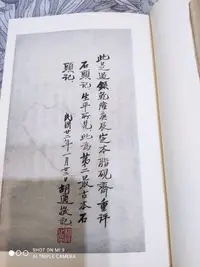 此是過錄乾隆庚辰定本脂硯齋重評
石頭記生平所見此為第二最古本石
頭記
民國廿二年一月廿二日胡適敬記
MI 9 SE
AI TRIPLE CAMERA